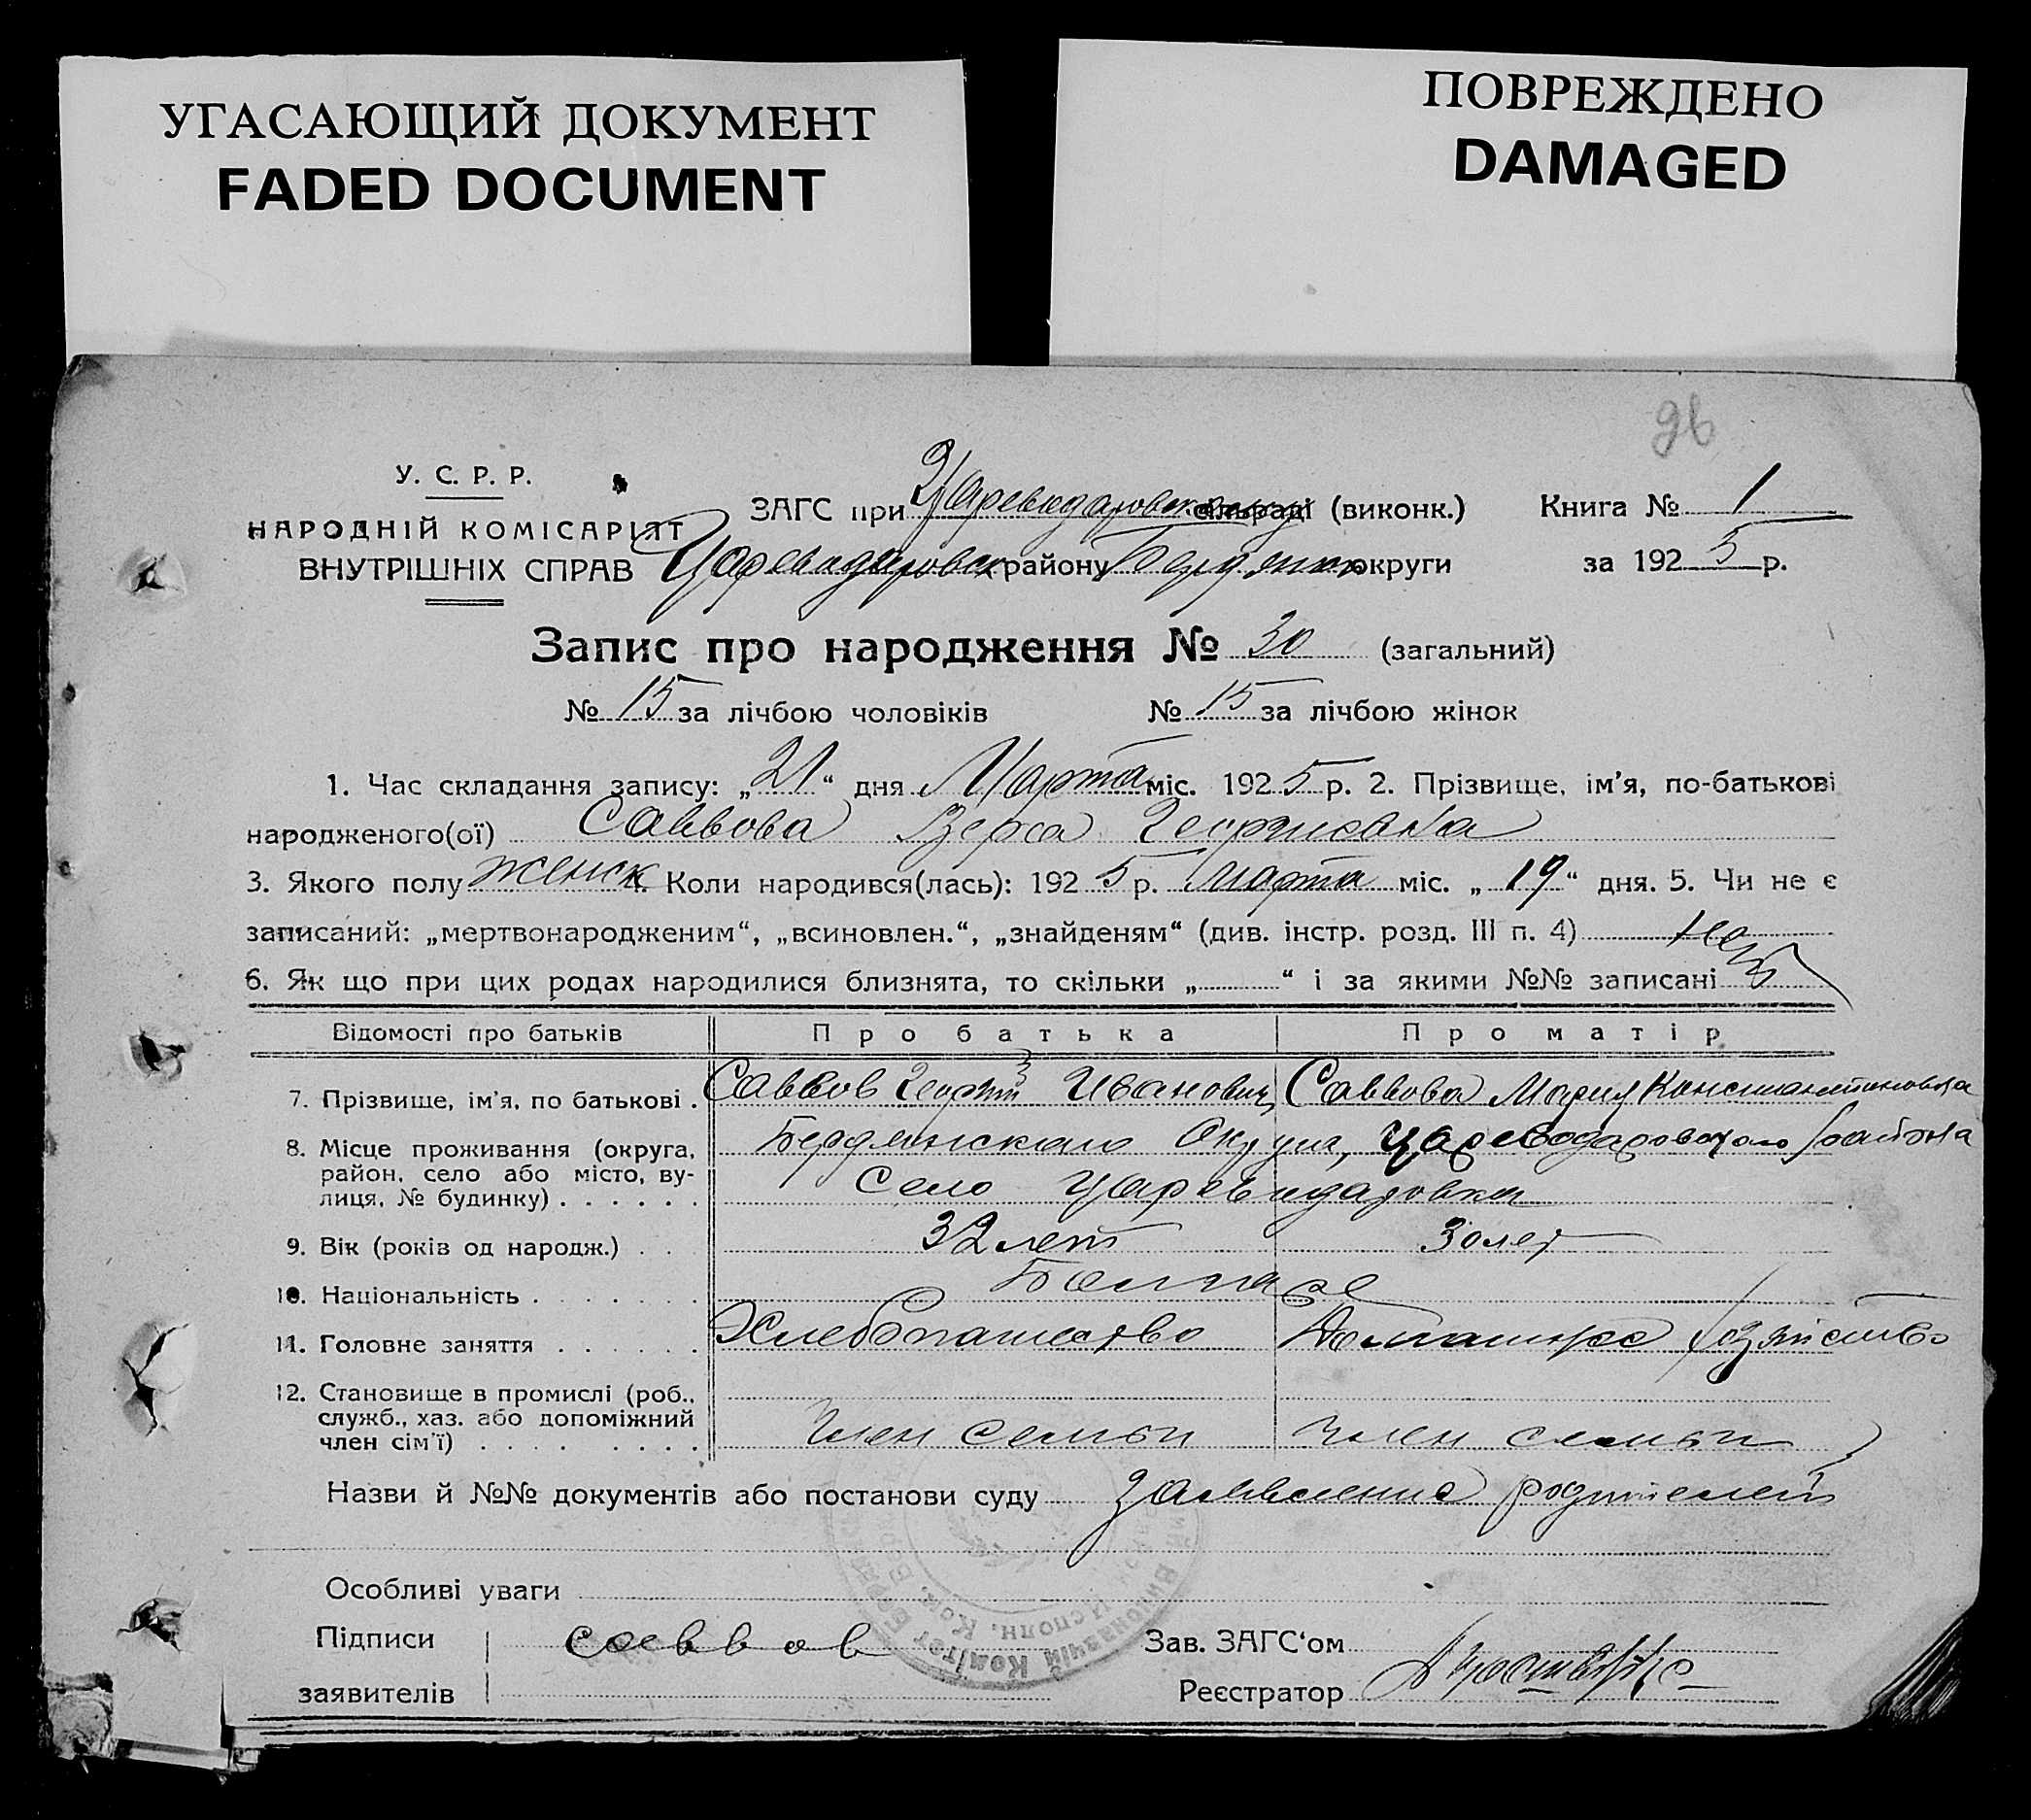 УГАСАЮЩИЙ ДОКУМЕНТ
FADED DOCUMENT
ПОВРЕЖДЕНО
DAMAGED
96
У. С. Р. Р.
НАРОДНІЙ КОМІСАРІЯТ
ВНУТРІШНІХ СПРАВ
ЗАГС при Цареводаровском сільраді (виконк.)
Цареводаровск району Бердянск округи
Книга № 1
за 1925 р.
Запис про народження № 30 (загальний)
№ 15 за лічбою чоловіків № 15 за лічбою жінок
1. Час складання запису: „21“ дня Марта міс. 1925 р. 2. Прізвище, ім'я, по-батькові
народженого(ої) Саввова Вера Георгиевна
3. Якого полу женск. Коли народився(лась): 1925 р. марта міс. „19“ дня. 5. Чи не є
записаний: „мертвонародженим“, „всиновлен.“, „знайденям“ (див. інстр. розд. III п. 4) нет
6. Як що при цих родах народилися близнята, то скільки „ “ і за якими №№ записані
Відомості про батьків Про батька Про матір
7. Прізвище, ім'я, по батькові . Саввов Георгий Иванович, Саввова Мария Константиновна
8. Місце проживання (округа, Бердянскаго Округа, Цареводаровскаго района
район, село або місто, ву-
лиця, № будинку) . . . . . . Село Цареводаровка
9. Вік (років од народж.) . . 32 лет 30 лет
10. Національність . . . . . . . Болгаре
11. Головне заняття . . . . . . Хлебопашество Домашнее хозяйство
12. Становище в промислі (роб.,
служб., хаз. або допоміжний
член сім'ї) . . . . . . . . Член семьи член семьи
Назви й №№ документів або постанови суду заявление родителей
Особливі уваги
Підписи саввов Зав. ЗАГС‘ом
заявителів Реєстратор
Виконавчій Комітет
Исполн. Ком.